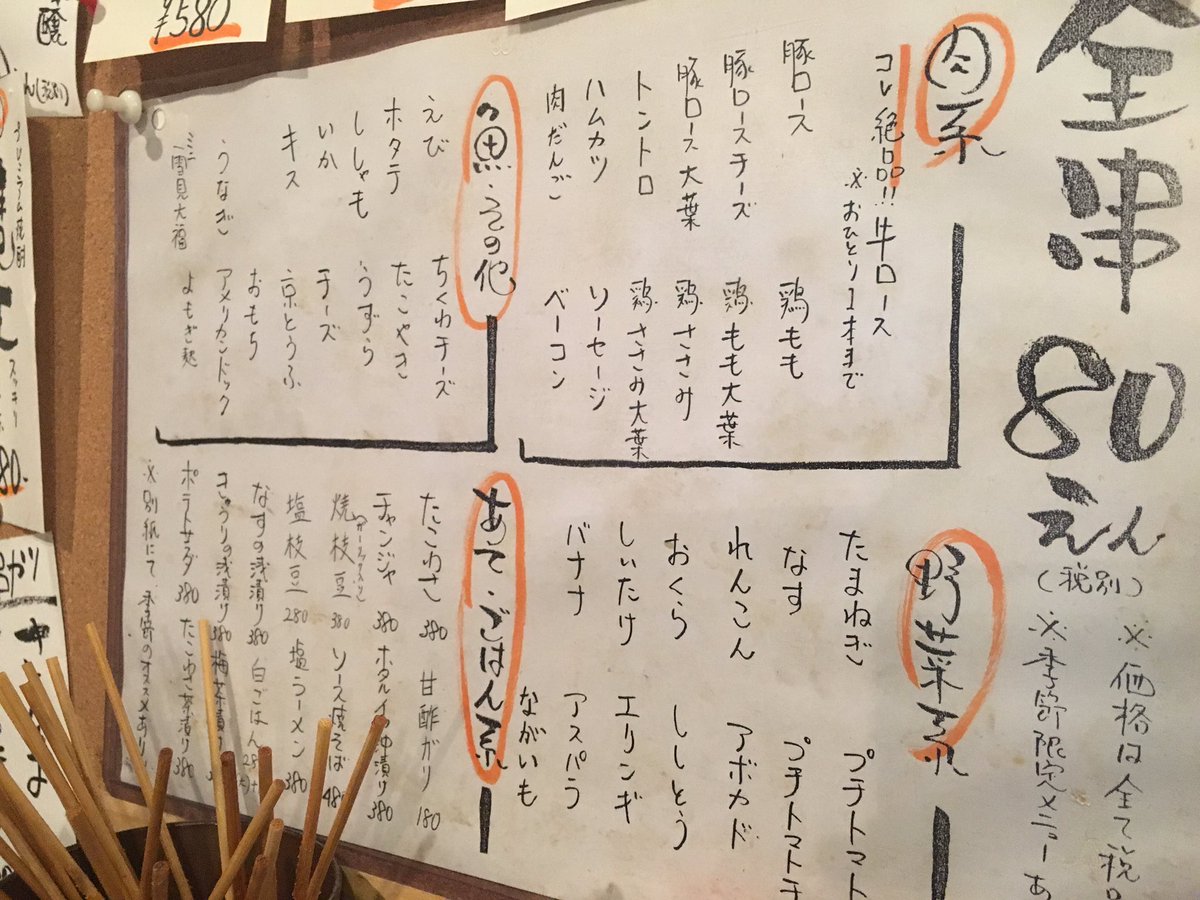 全串80えん(税別)
※価格は全て税
※季節限定メニューあ
肉系
コレ絶品!!牛ロース
※おひとり1本まで
豚ロース
豚ロースチーズ
豚ロース大葉
トントロ
ハムカツ
肉だんご
鶏もも
鶏もも大葉
鶏ささみ
鶏ささみ大葉
ソーセージ
ベーコン
魚・その他
えび
ホタテ
ししゃも
いか
キス
うなぎ
ミニ雪見大福
ちくわチーズ
たこやき
うずら
チーズ
京とうふ
おもち
アメリカンドック
よもぎ麩
野菜系
たまねぎ
なす
れんこん
おくら
しいたけ
バナナ
プチトマト
プチトマトチ
アボカド
ししとう
エリンギ
アスパラ
ながいも
あて・ごはん系
たこわさ 380
チャンジャ 380
焼枝豆 380
塩枝豆 280
なすの浅漬け 380
きゅうりの浅漬け 380
ポテトサラダ 380
甘酢ガリ 180
ホタルイカ沖漬け 380
ソース焼そば 480
塩ラーメン 380
白ごはん
梅茶漬け
たこわさ茶漬け 380
※別紙にて、季節のオススメあり
¥580
(税別)
スッキリ
80.